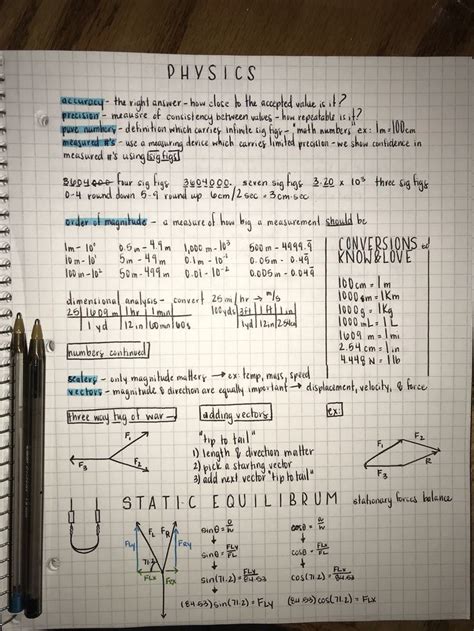 PHYSICS
accuracy - the right answer - how close to the accepted value is it?
precision - measure of consistency between values - how repeatable is it?
pure numbers - definition which carries infinite sig figs - "math numbers" ex: 1m=100cm
measured #'s - use a measuring device which carries limited precision - we show confidence in
measured #'s using sig figs
3604000 four sig figs 3604000. seven sig figs 3.20 x 10³ three sig figs
0-4 round down 5-9 round up 6cm/2sec = 3cm·sec
order of magnitude - a measure of how big a measurement should be
1m - 10⁰ 0.5m - 4.9m 1,000m - 10³ 500m - 4999.9̄
10m - 10¹ 5m - 49m 0.1m - 10⁻¹ 0.05m - 0.49̄
100m - 10² 50m - 499m 0.01 - 10⁻² 0.005m - 0.049̄
CONVERSIONS to
KNOW&LOVE
100cm = 1m
1000m = 1Km
1000g = 1Kg
1000mL = 1L
1609m = 1mi
2.54cm = 1in
4.448N = 1lb
dimensional analysis - convert 25mi/hr → m/s
25 1609m 1hr 1min
1yd 12in 60min 60s
100yds 3ft 1ft 1in
1yd 12in 2.54cm
numbers continued
scalers - only magnitude matters → ex: temp, mass, speed
vectors - magnitude & direction are equally important → displacement, velocity, & force
three way tug of war
F₁
F₂
F₃
adding vectors
"tip to tail"
1) length & direction matter
2) pick a starting vector
3) add next vector "tip to tail"
ex:
F₁
F₂
F₃
R
STATIC EQUILIBRUM stationary forces balance
FLy
FL
FR
FRy
71.2
FLx
FRx
sinθ =
cosθ =
sinθ = FLy/FL
cosθ = FLx/FL
sin(71.2) = FLy/84.53
cos(71.2) = FLx/84.53
(84.53)sin(71.2) = FLy
(84.53)cos(71.2) = FLx